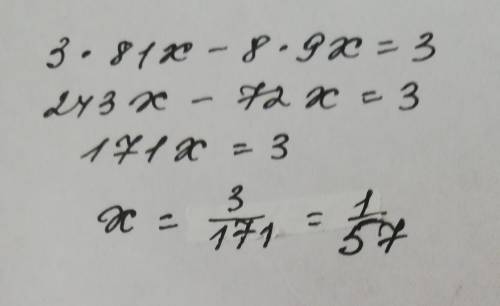 3 · 81x - 8 · 9x = 3
243x - 72x = 3
171x = 3
x = 3/171 = 1/57